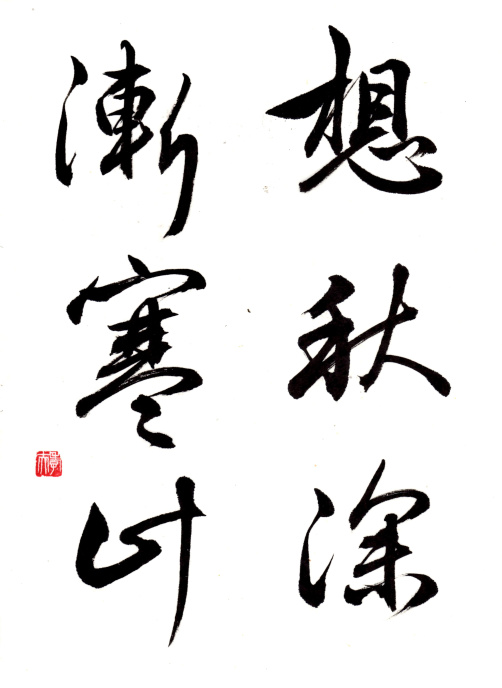 想秋深
漸寒計